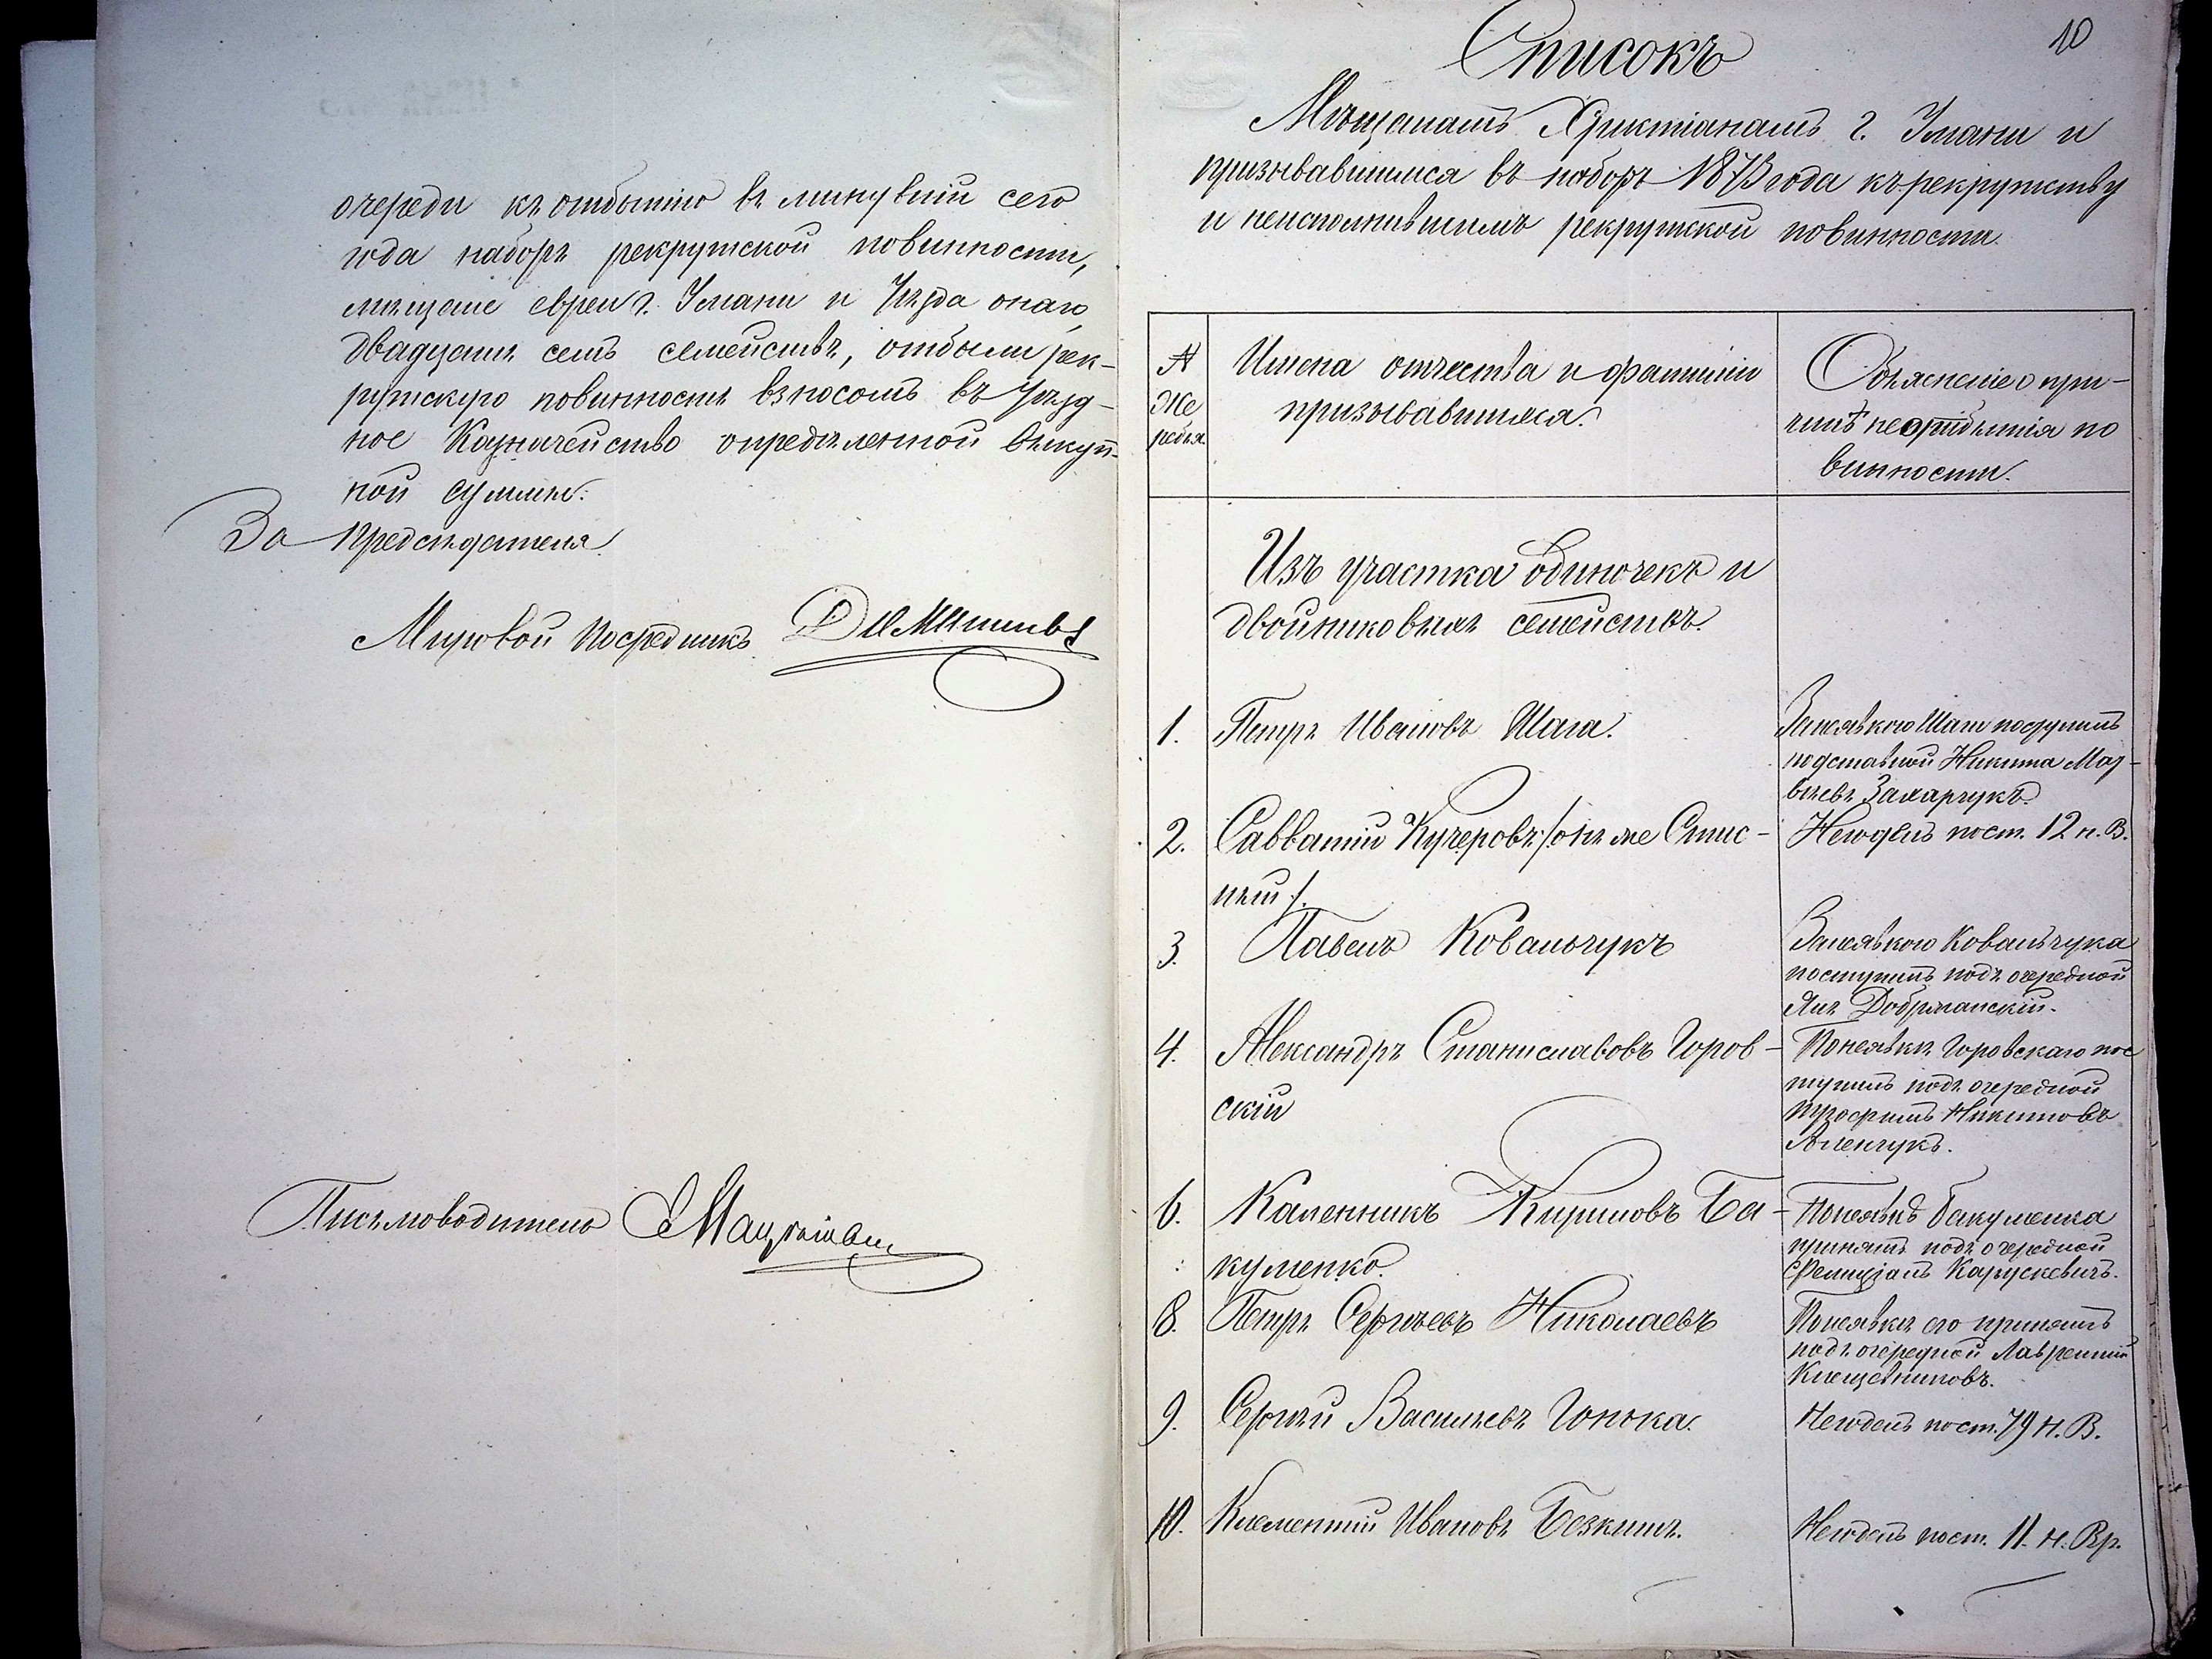 очереди къ отбытію въ минувшій сего
года наборъ рекрутской повинности,
мѣщане евреи г. Умани и Уѣзда онаго
двадцать семь семействъ, отбыли рек-
рутскую повинность взносомъ въ Уѣзд-
ное Казначейство опредѣленной выкуп-
ной суммы.
За Предсѣдателя
Мировой Посредникъ
Письмоводитель
10
Списокъ
Мѣщанамъ Христіанамъ г. Умани и
призывавшимся въ наборъ 1873 года къ рекрутству
и неисполнившимъ рекрутской повинности.
№ жеребья
Имена отчества и фамиліи
призывавшихся.
Объясненіе о при-
чинѣ неотбытія по
винности.
Изъ участка одиночекъ и
двойниковыхъ семействъ.
1. Петръ Ивановъ Шага.
За неявкою Шаги поступилъ
подставной Никита Мат-
вѣевъ Захарчукъ.
2. Савватій Кучеровъ /онъ же Спис-
ный/.
Негоденъ пост. 12 н. В.
3. Павелъ Ковальчукъ
За неявкою Ковальчука
поступилъ подъ очередной
Янъ Добржанскій.
4. Александръ Станиславовъ Горов-
скій
По неявкѣ Горовскаго пос
тупилъ подъ очередной
Трофимъ Никитовъ
6. Каленникъ Кириловъ Ба-
куменко.
По неявкѣ Бакуменка
принятъ подъ очередной
Фелиціанъ Карускевичъ.
8. Петръ Сергѣевъ Николаевъ
По неявкѣ его принятъ
подъ очередной Лаврентій
Клещевниковъ.
9. Сергѣй Васильевъ Гонька.
Негоденъ пост. 79 н. В.
10. Климентій Ивановъ Безкишъ.
Негоденъ пост. 11. н. Вр.